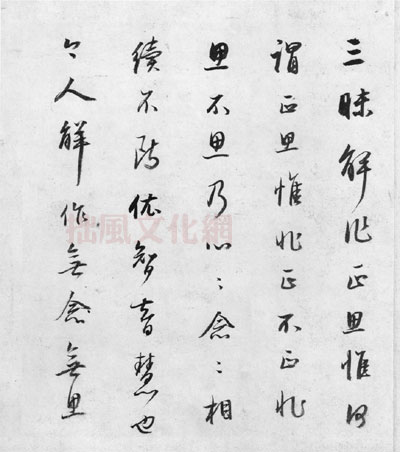 三昧解作正思惟何
謂正思惟非正不正非
思不思乃心〻念〻相
續不斷依智者慧也
今人解作無念無思
拙風文化網